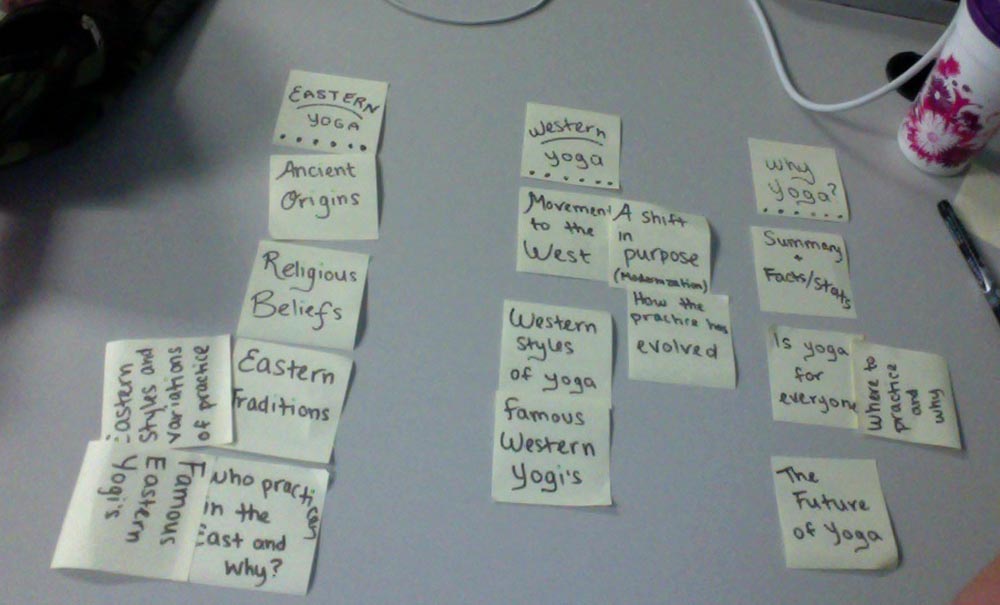 EASTERN
YOGA
Ancient
Origins
Religious
Beliefs
Eastern
Traditions
Eastern
Styles and
variations
of practice
Famous
Eastern
Yogi's
who practices
in the
East and
why?
Western
yoga
Movement
to the
West
A shift
in
purpose
(Modernization)
How the
practice has
evolved
Western
styles
of yoga
famous
Western
Yogi's
why
yoga?
Summary
+
Facts/Stats
Is yoga
for
everyone
where to
practice
and
why
The
Future
of Yoga